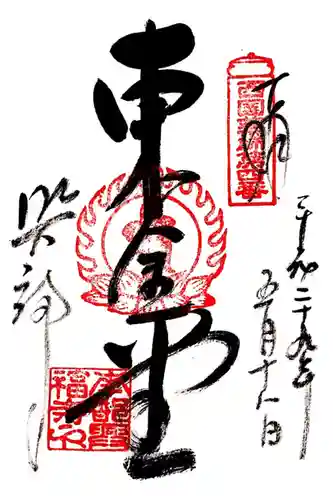 奉拝
平成二十九年
五月十八日
東金堂
興福寺